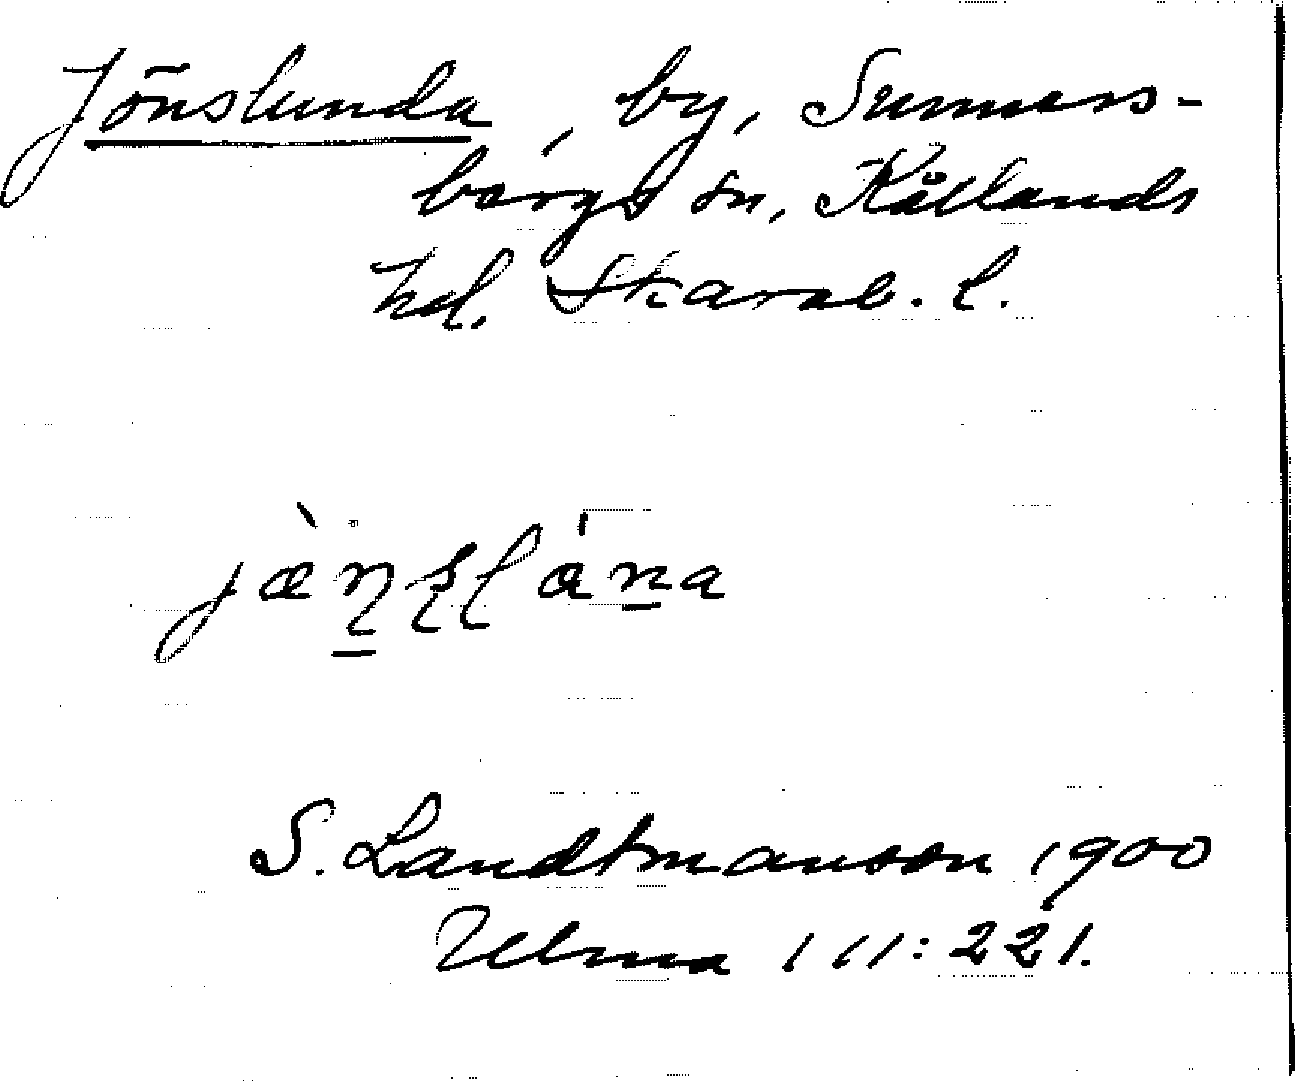 Jönslunda, by, Sunners-
bergs sn, Kållands
hd. Skarab. l.
S. Landtmanson 1900
Ulma 111:221.